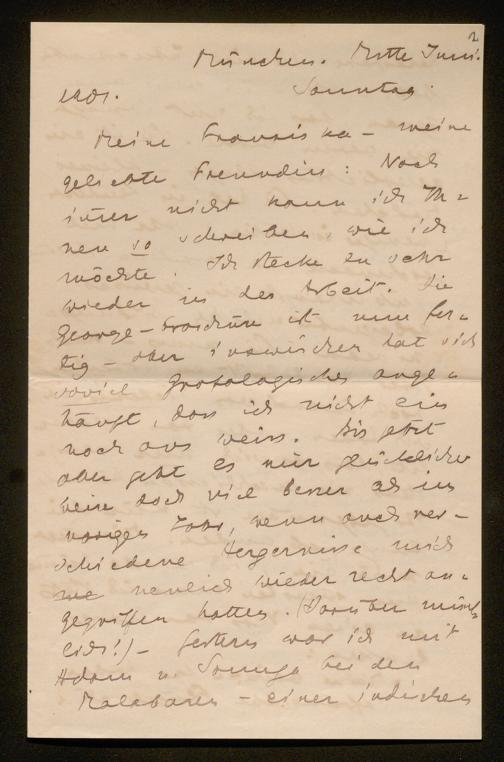 2
München. Mitte Juni.
1901. Sonntag.
Meine Franziska – meine
geliebte Freundin: Noch
immer nicht kann ich Ih=
nen so schreiben, wie ich
möchte. Ich stecke zu sehr
wieder in der Arbeit. Die
George-Broschüre ist nun fer=
tig – aber inzwischen hat sich
soviel Grafologisches ange=
häuft, dass ich nicht ein
noch aus weiss. Bis jetzt
aber geht es mir glücklicher
weise doch viel besser als im
vorigen Jahr, wenn auch ver-
schiedene Aergernisse mich
neulich wieder recht an=
gegriffen hatten. (Darüber münd=
lich!) – Gestern war ich mit
Adam u. bei den
Malabaren – einer indischen